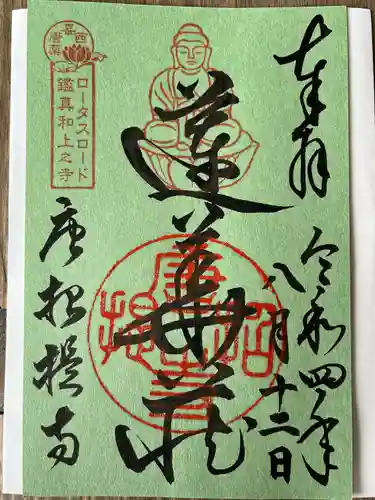 奉拝
令和四年
八月十二日
蓮華蔵
唐招提寺
ロータスロード
鑑真和上之寺
唐招提寺